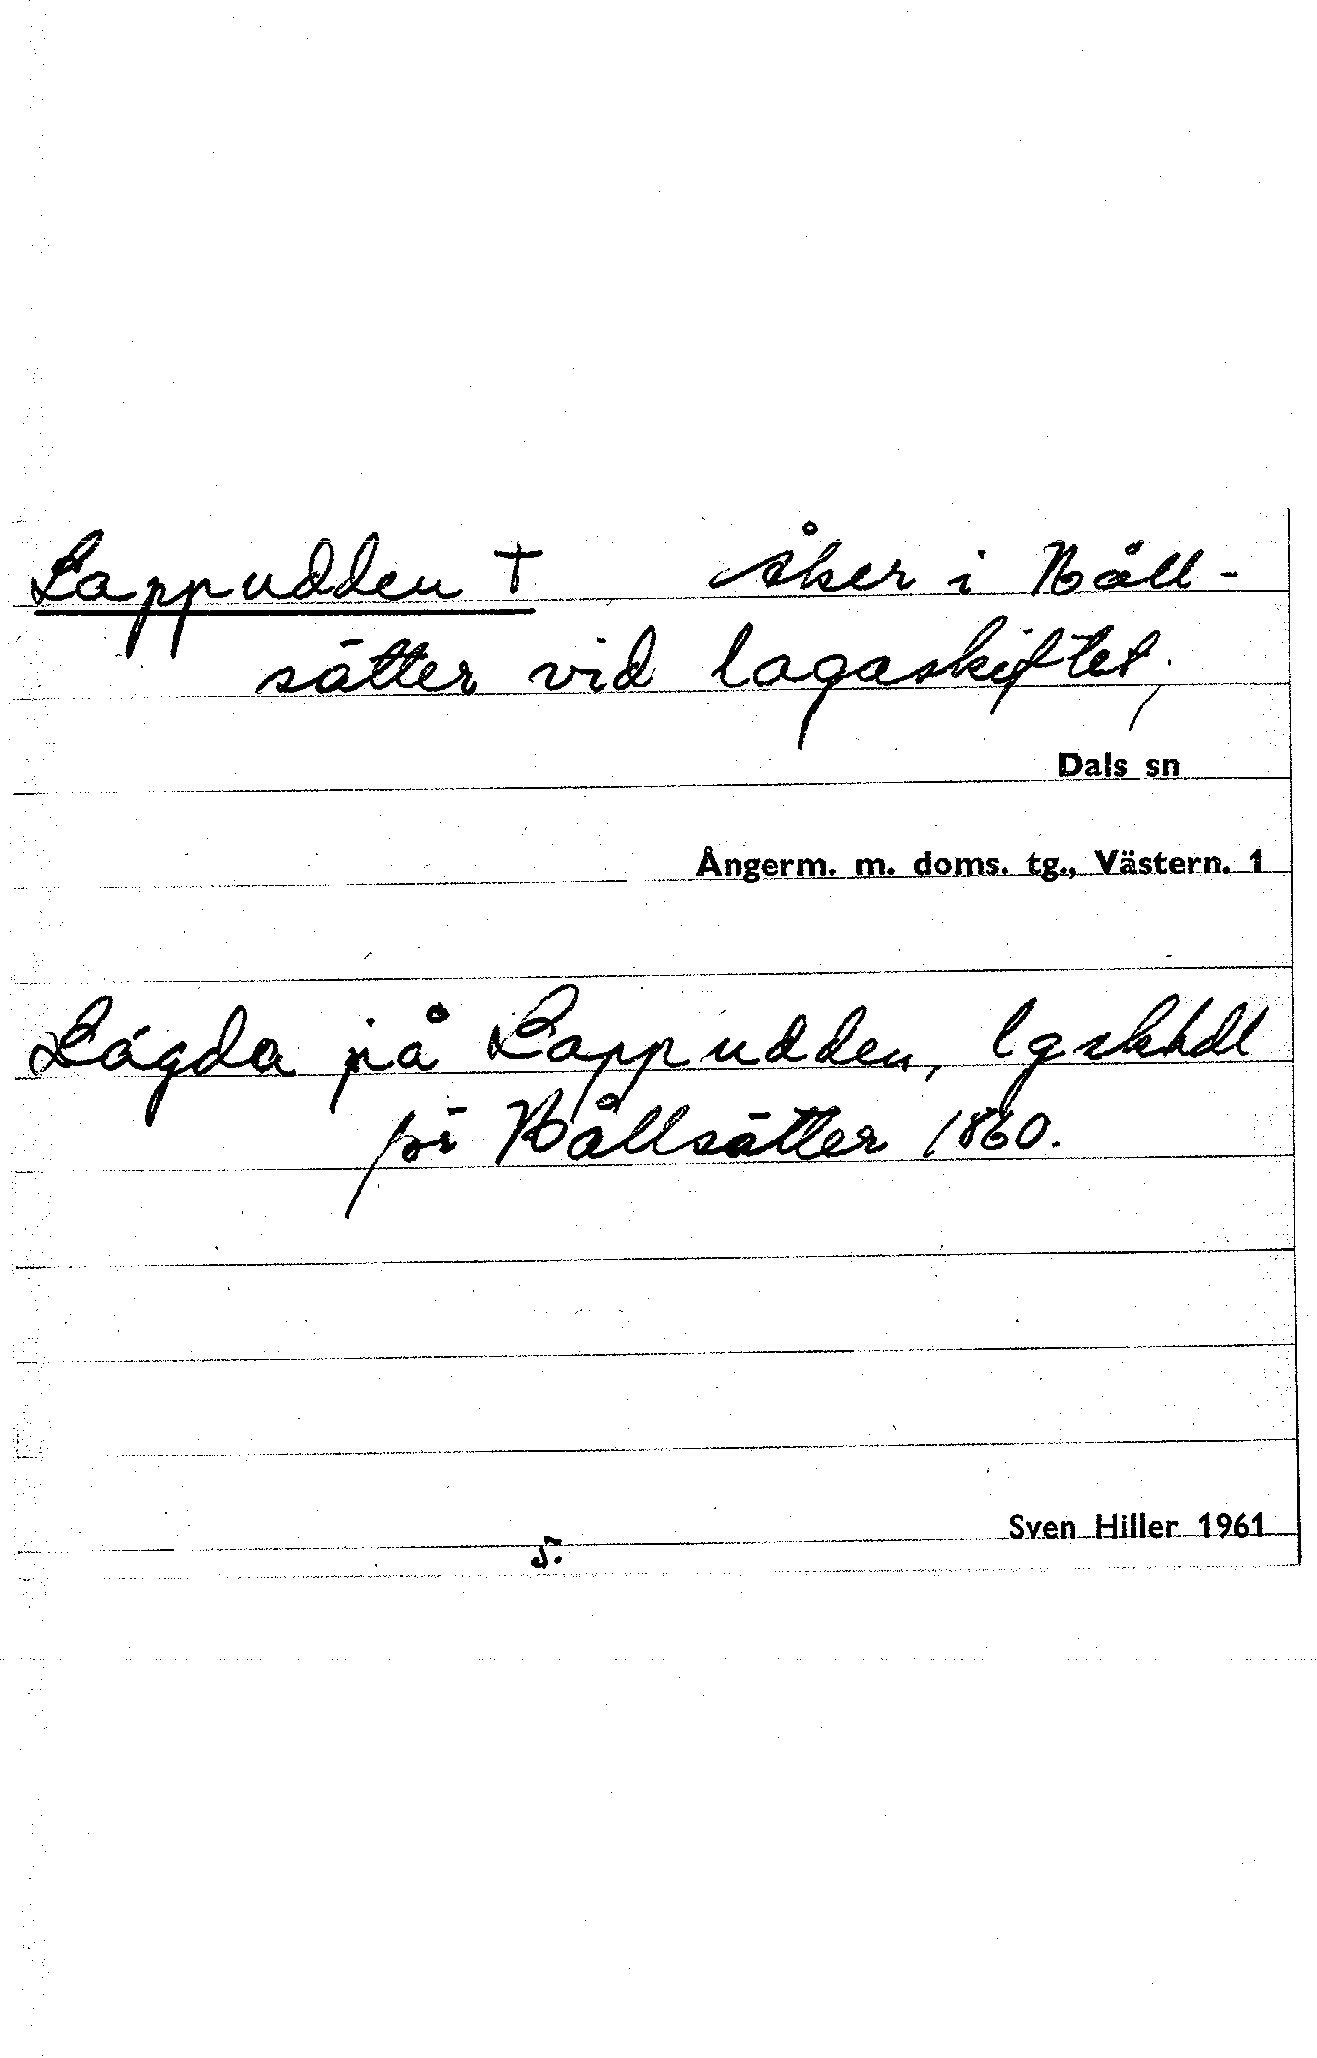 Lappudden † åker i Håll-
sätter vid lagaskiftet,
Dals sn
Ångerm. m. doms. tg., Västern. 1
Lägda på Lappudden, lgskhdl
för Hållsätter 1860.
Sven Hiller 1961
5.